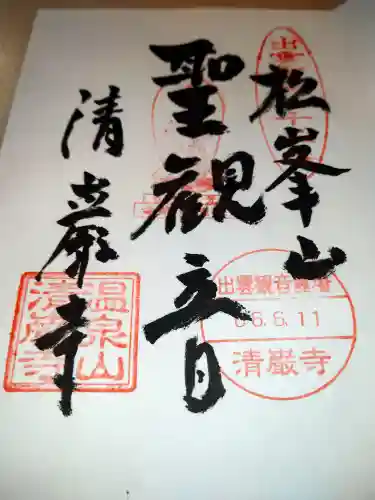 松峯山
聖観立日
清巌寺
出雲観音霊場
06.6.11
清巌寺
温泉山
清巌寺